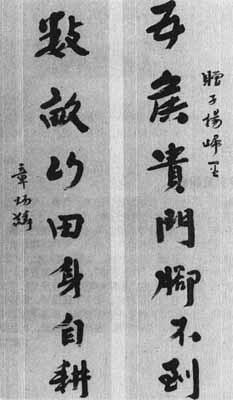 贈子楊
五侯貴門腳不到
數畝山田身自耕
章炳麟